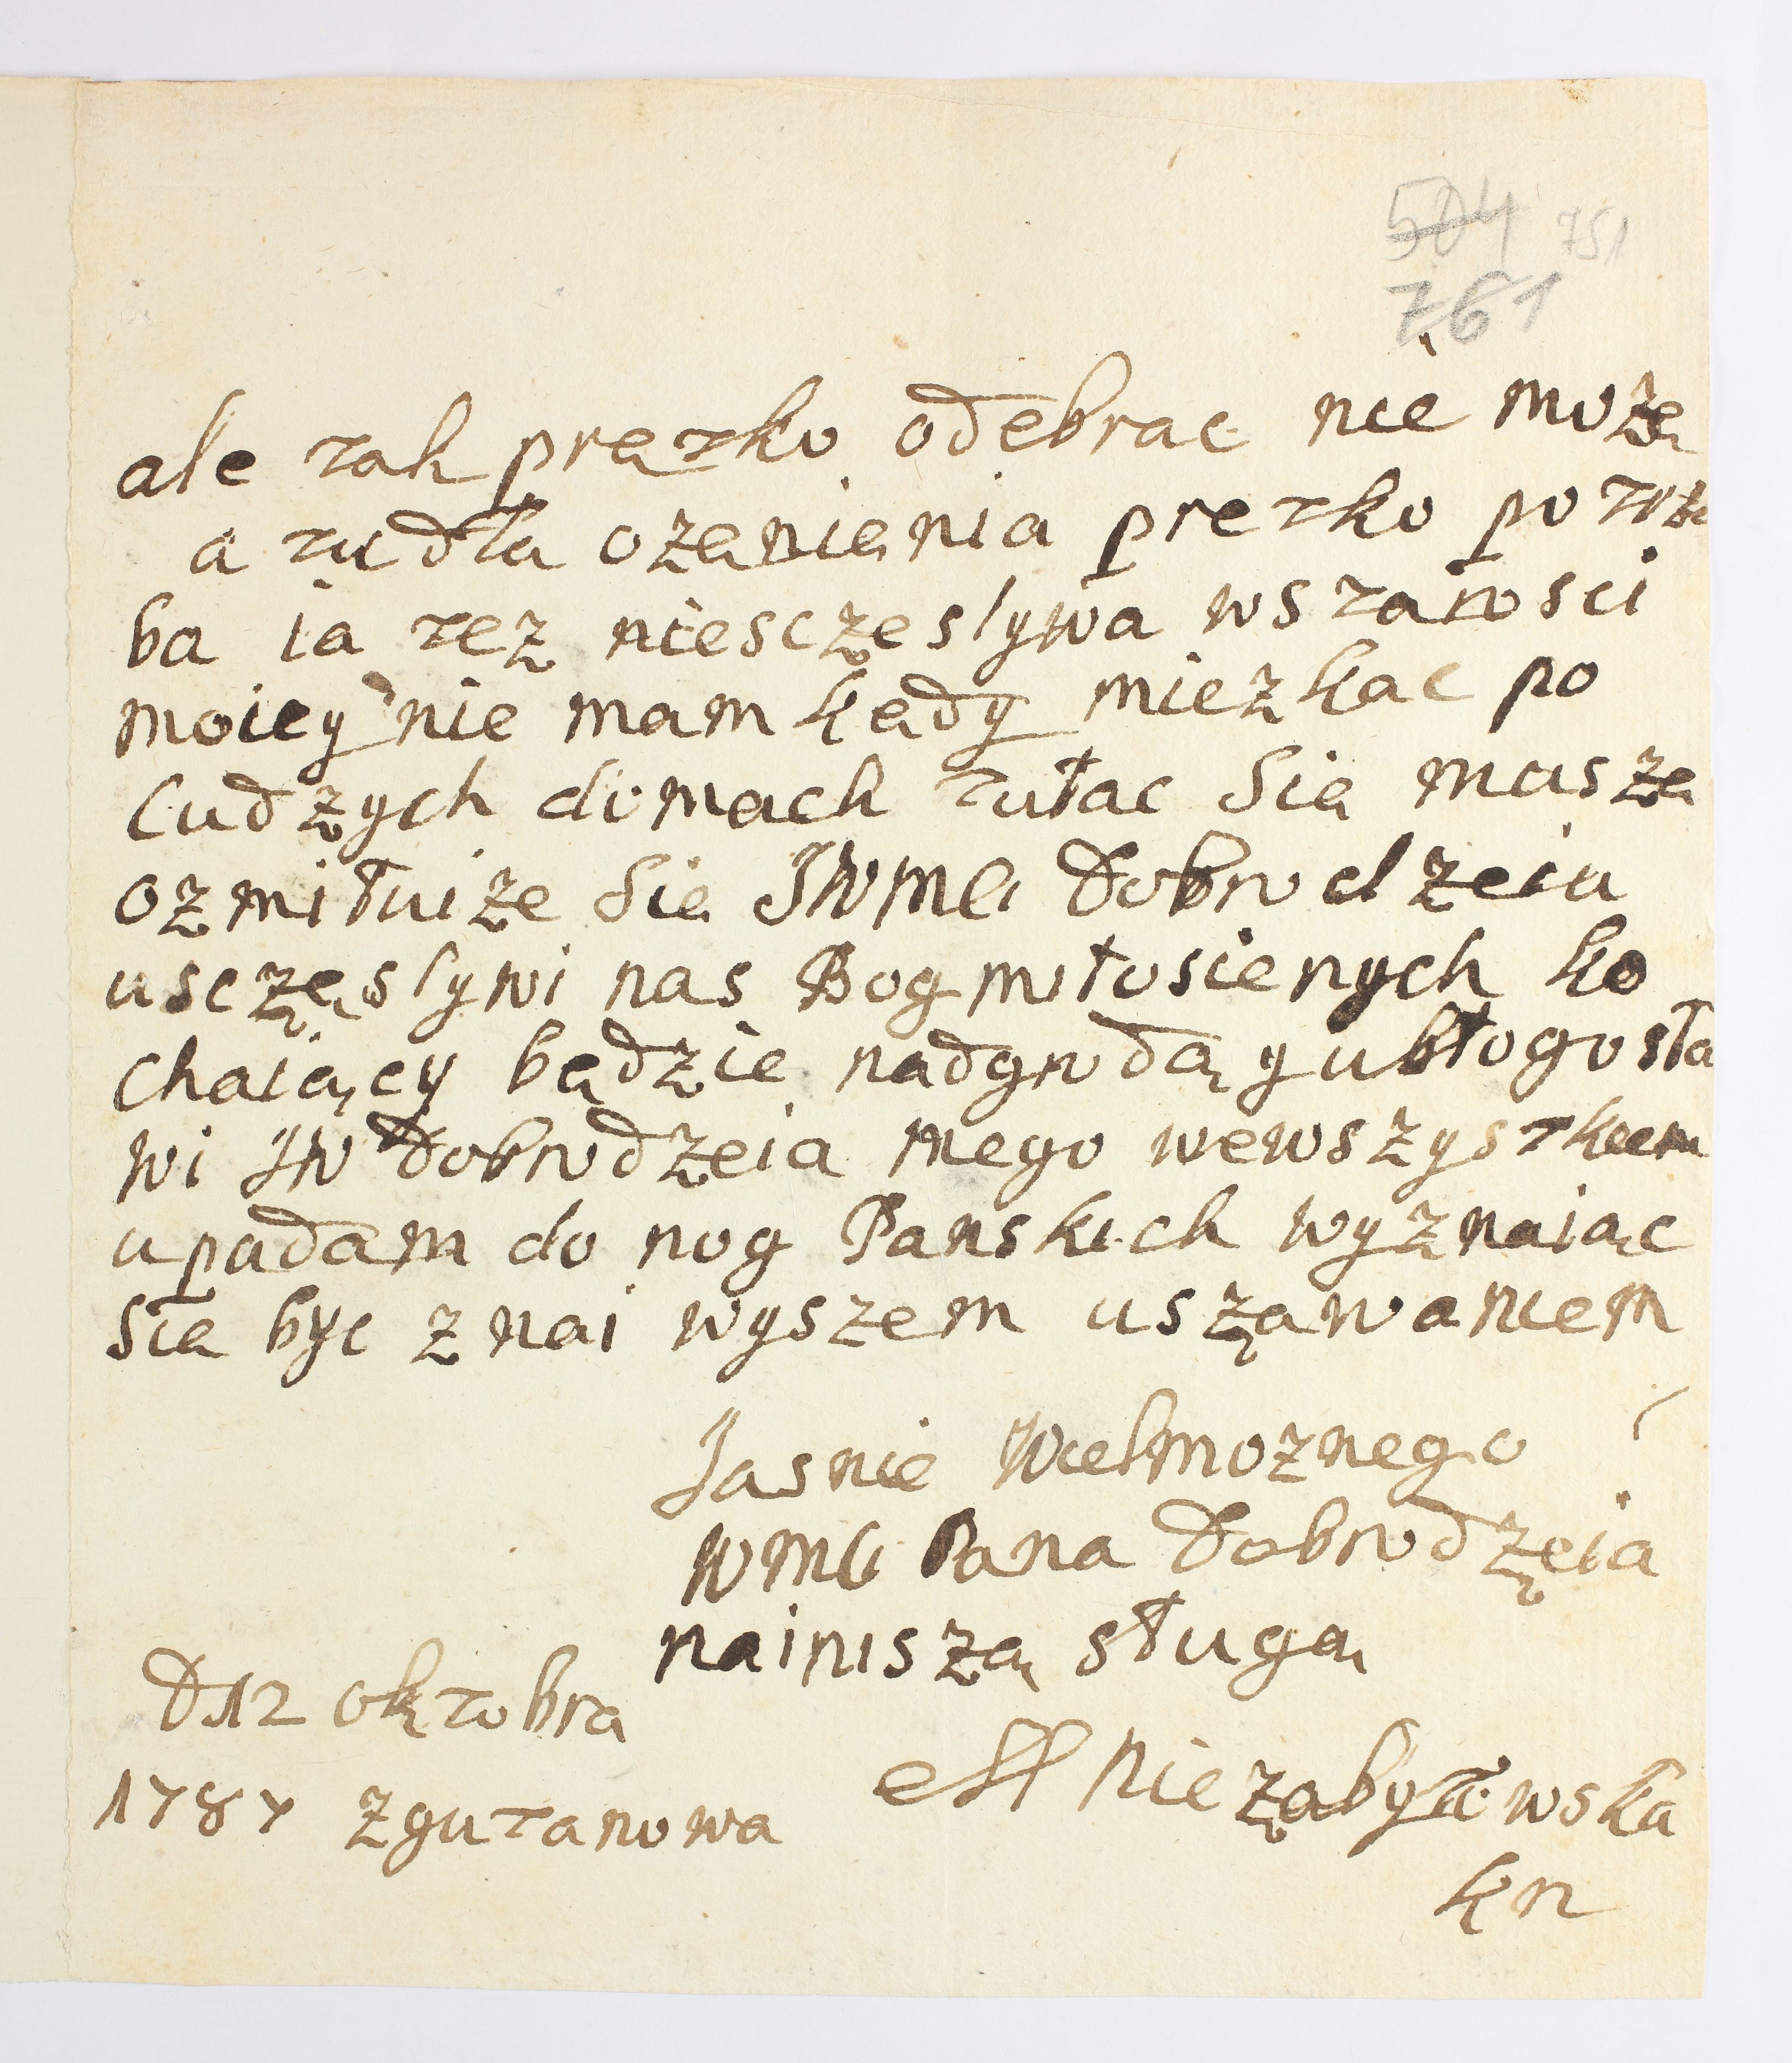 504 751
761
ale tak prętko odebrac nie mozę
a tu dla ozęnięnia pretko potrze
ba ia tez niesczęslywa w starosci
moiey nie mam kędy miezkac po
cudzych domach tułac się muszę
ozmiłuize się JWMC Dobrodzeiu
usczęslywi nas Bog miłosienych ko
chaiący będzie nadgrodą y ubłogosła
wi JW Dobrodzeia mego wewszystkiem
upadam do nog Panskich wyznaiąc
się byc z nai wyszem uszawaniem
Jasnie Wielmoznego
WMC Pana Dobrodzeia
nainiszą sługą
D 12 oktobra
1787 z gutanowa
Niezabytowska
kn